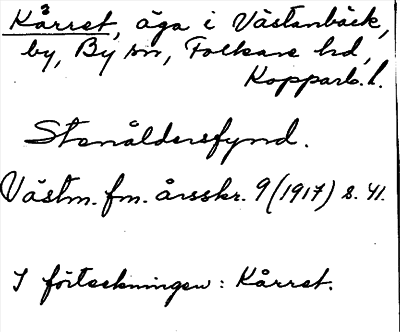 Kårret, äga i Västanbäck,
by, By sn, Folkare hd,
Kopparb. l.
Stenåldersfynd.
Västm. fm. årsskr. 9 (1917) s. 41.
I förteckningen: Kårret.